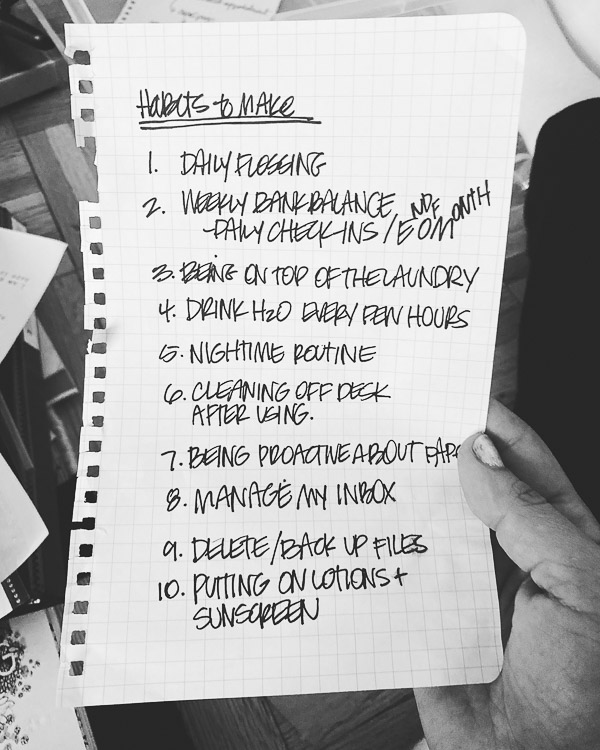 HABITS to MAKE
1. DAILY FLOSSING
2. WEEKLY BANK BALANCE
- DAILY CHECK-INS / EOM
ND OF MONTH
3. BEING ON TOP OF THE LAUNDRY
4. DRINK H2O EVERY FEW HOURS
5. NIGHTIME ROUTINE
6. CLEANING OFF DESK
AFTER USING.
7. BEING PROACTIVE ABOUT
8. MANAGE MY INBOX
9. DELETE/BACK UP FILES
10. PUTTING ON LOTIONS +
SUNSCREEN